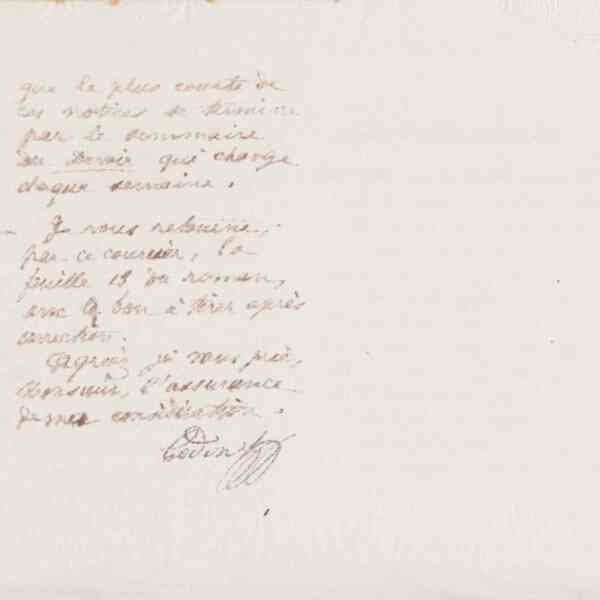 que la plus courte de
ces notices se termine
par le sommaire
du Devoir qui change
chaque semaine.
Je vous retourne,
par ce courrier, la
feuille 13 du roman,
avec le bon à tirer après
correction.
Agréez, je vous prie,
Monsieur, l'assurance
de ma considération.
Godin